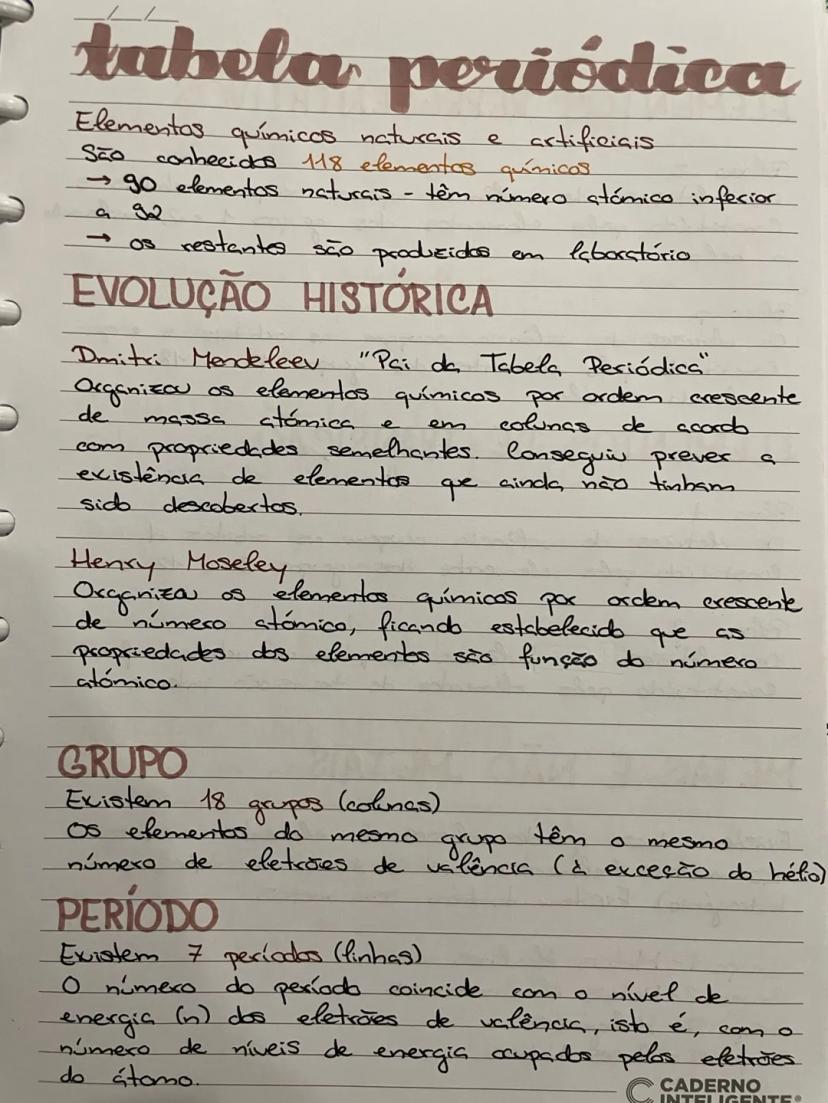 tabela periódica
Elementos químicos naturais e artificiais
São conhecidos 118 elementos químicos
→ 90 elementos naturais - têm número atómico inferior
a 92
→ os restantes são produzidos em laboratório
EVOLUÇÃO HISTÓRICA
Dmitri Mendeleev "Pai da Tabela Periódica"
Organizou os elementos químicos por ordem crescente
de massa atómica e em colunas de acordo
com propriedades semelhantes. Conseguiu prever a
existência de elementos que ainda não tinham
sido descobertos.
Henry Moseley
Organiza os elementos químicos por ordem crescente
de número atómico, ficando estabelecido que as
propriedades dos elementos são função do número
atómico.
GRUPO
Existem 18 grupos (colunas)
Os elementos do mesmo grupo têm o mesmo
número de eletrões de valência (à exceção do hélio)
PERÍODO
Existem 7 períodos (linhas)
O número do período coincide com o nível de
energia (n) dos eletrões de valência, isto é, com o
número de níveis de energia ocupados pelos eletrões
do átomo.
CADERNO
INTELIGENTE®